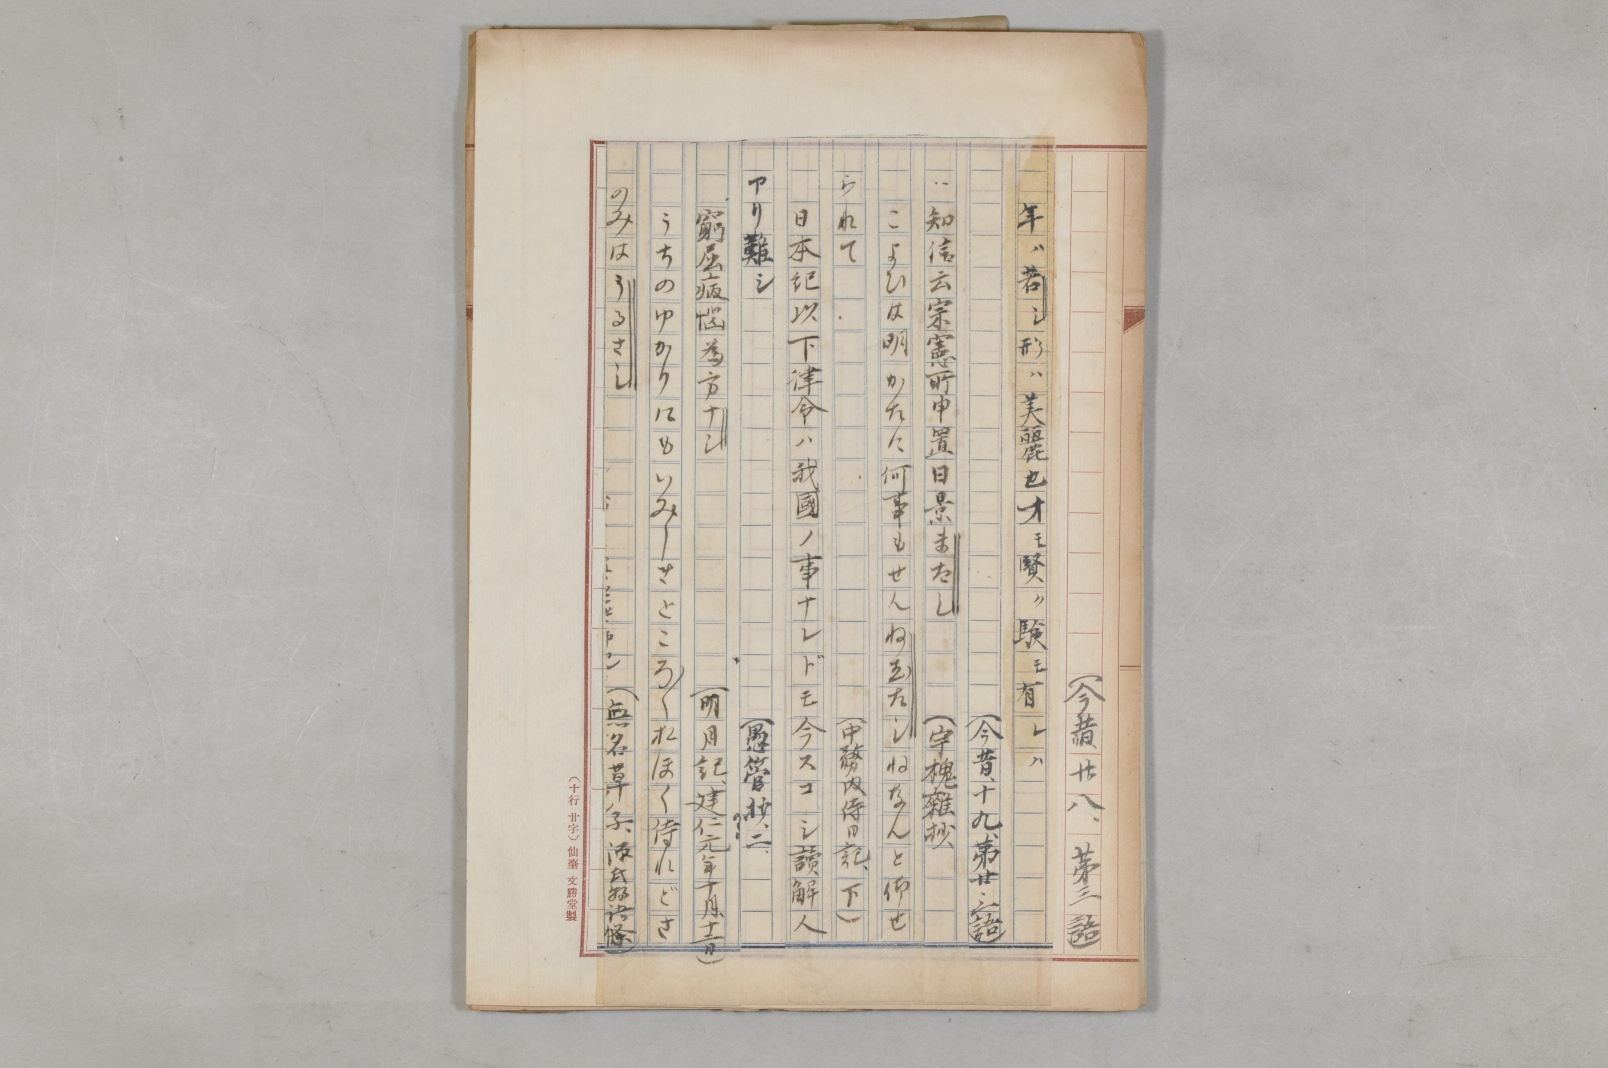 （今昔廿八、第三語）
年ハ若シ形ハ美麗也才モ賢ク驗モ有レハ
（今昔、十九、第廿三語）
知信云宗憲所申置日景まだし
（宇槐雜抄、
こよひは明かたに何事もせんねむたしねなんと仰せ
られて
（中務内侍日記、下）
日本記以下律令ハ我國ノ事ナレドモ今スコシ讀解人
アリ難シ
（愚管抄、二、
窮屈病惱為方ナシ
（明月記、建仁元年十月十三日）
うちのゆかりにもいみしきところ〳〵おほく侍れどさ
のみはうるさし
（無名草子、源氏物語條）
（十行廿字）仙臺文勝堂製